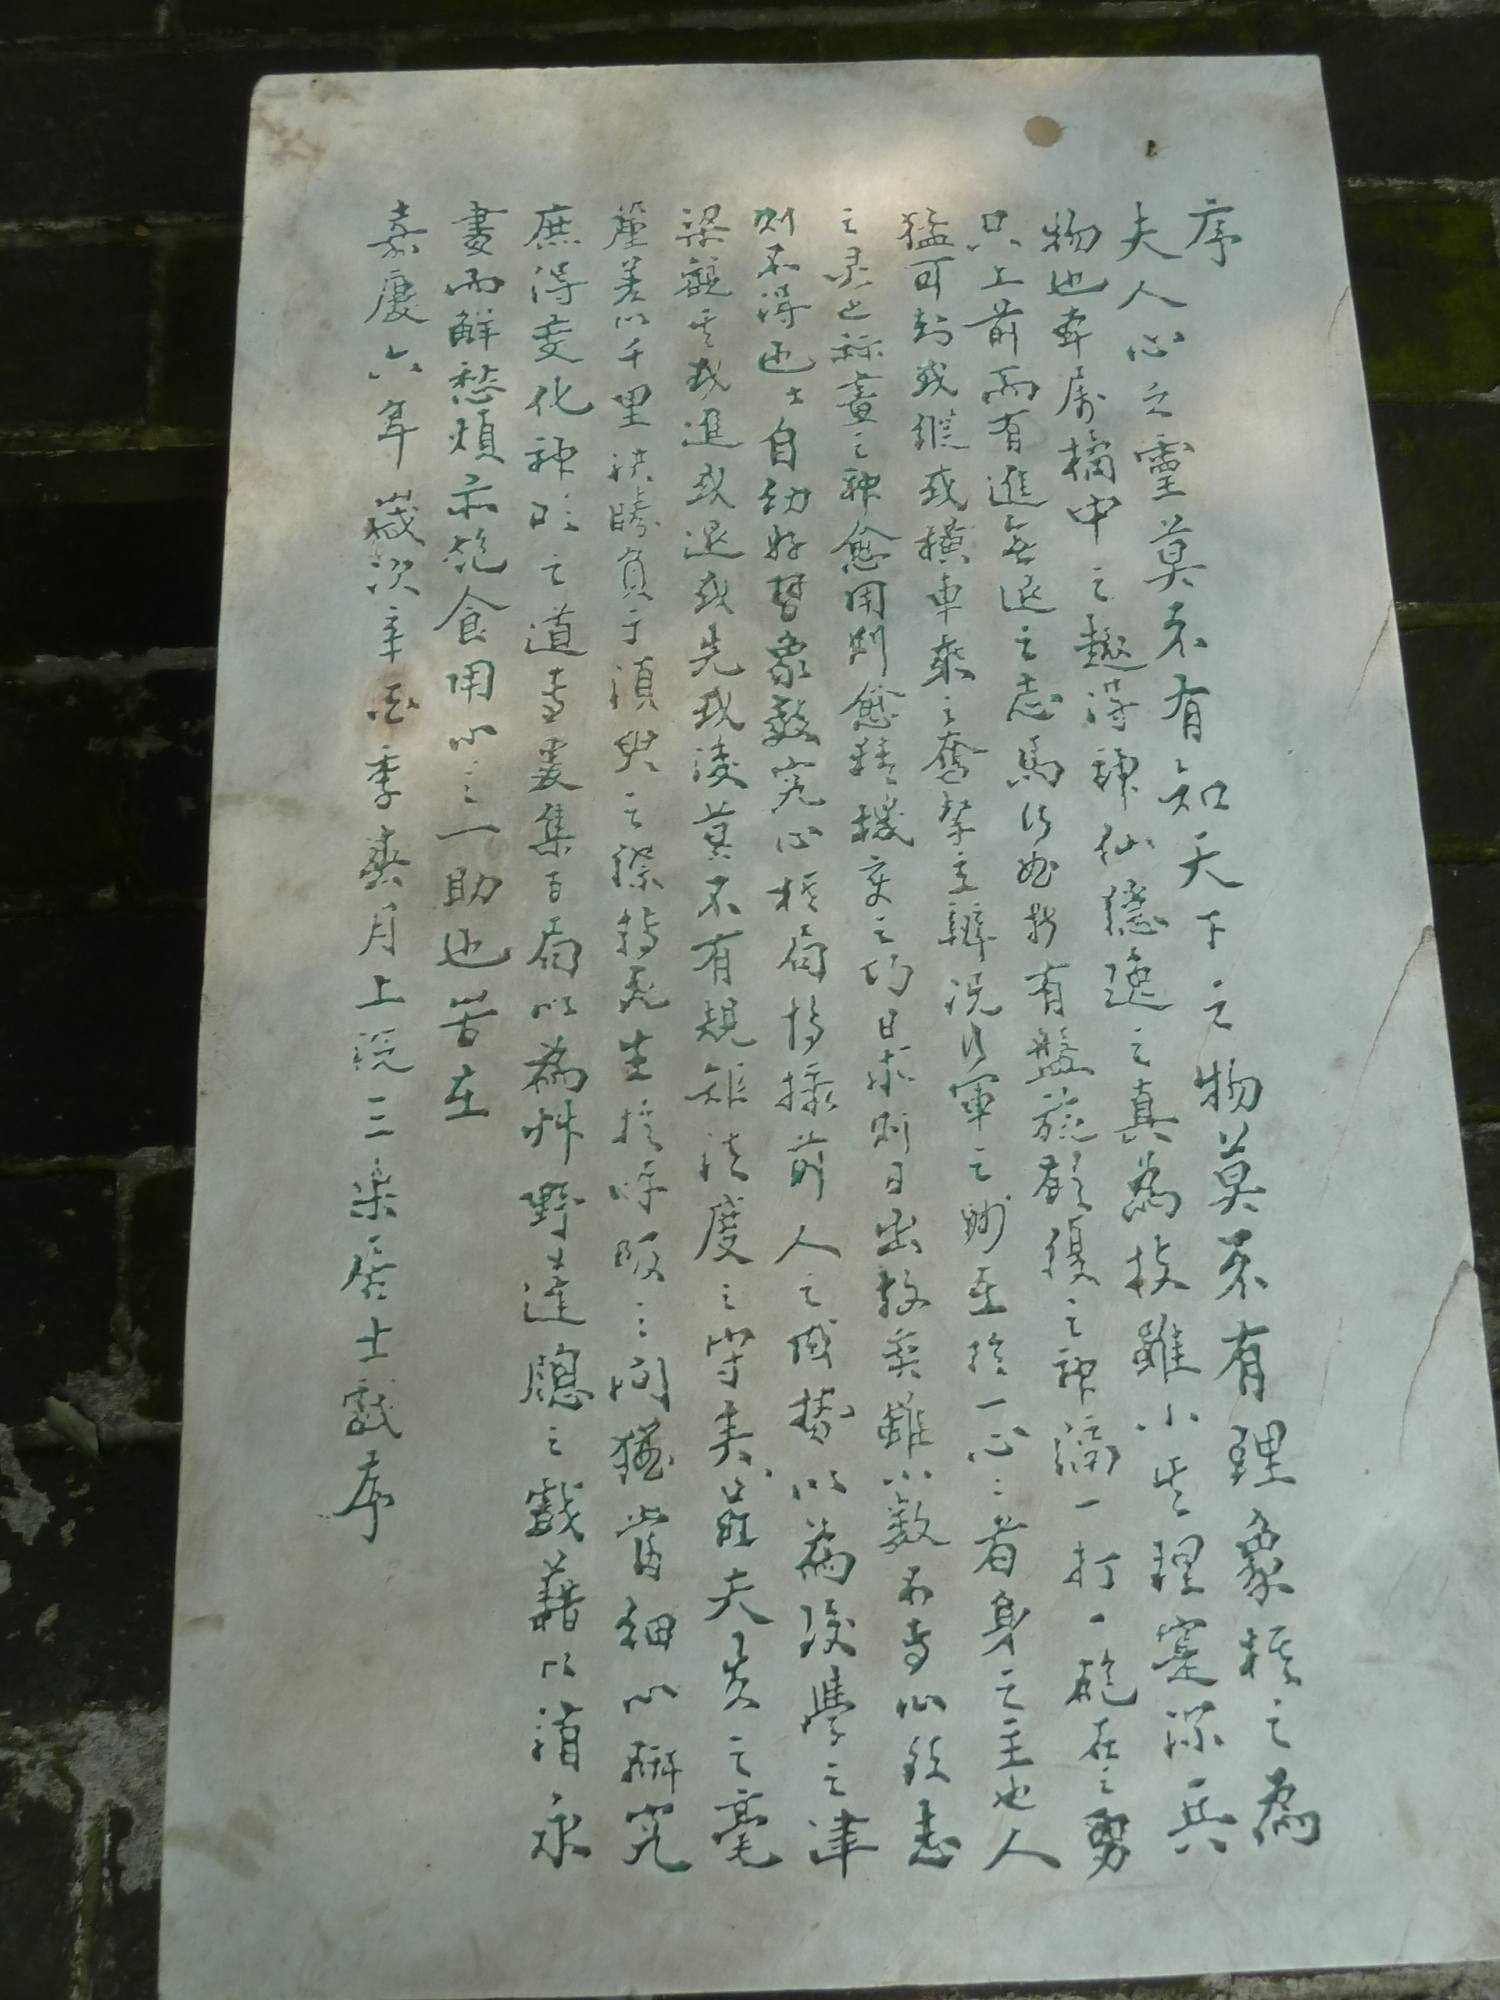 序
夫人心之靈莫不有知天下之物莫不有理象棋之為
物也率屬橘中之趣得神仙隱逸之真為技雖小其理寔深兵
只上前而有進無退之志馬行如折有盤旋顧後之神隔一打一砲在之勇
猛可封或縱或橫車乘之奮擊立辦況行軍之勝至於一心心者身之主也人
之灵也称畫之神愈用則愈精機変之巧日求則日出故奕雖小數不專心致志
則不得也士自幼好替象数究心棋局博採前人之成替以為後學之津
梁觀其或進或退或先或後莫不有規矩法度之寄奕豈夫失之毫
釐差以千里決勝負于湏臾之際轉死生於呼吸之间猶當细心研究
庶得变化神明之道专裒集百局以為艸野達聰之戯藉以消永
晝而觧愁煩亦飽食用心之一助也岩在
嘉慶六年歲次辛酉季冬月上浣三樂居士戱序